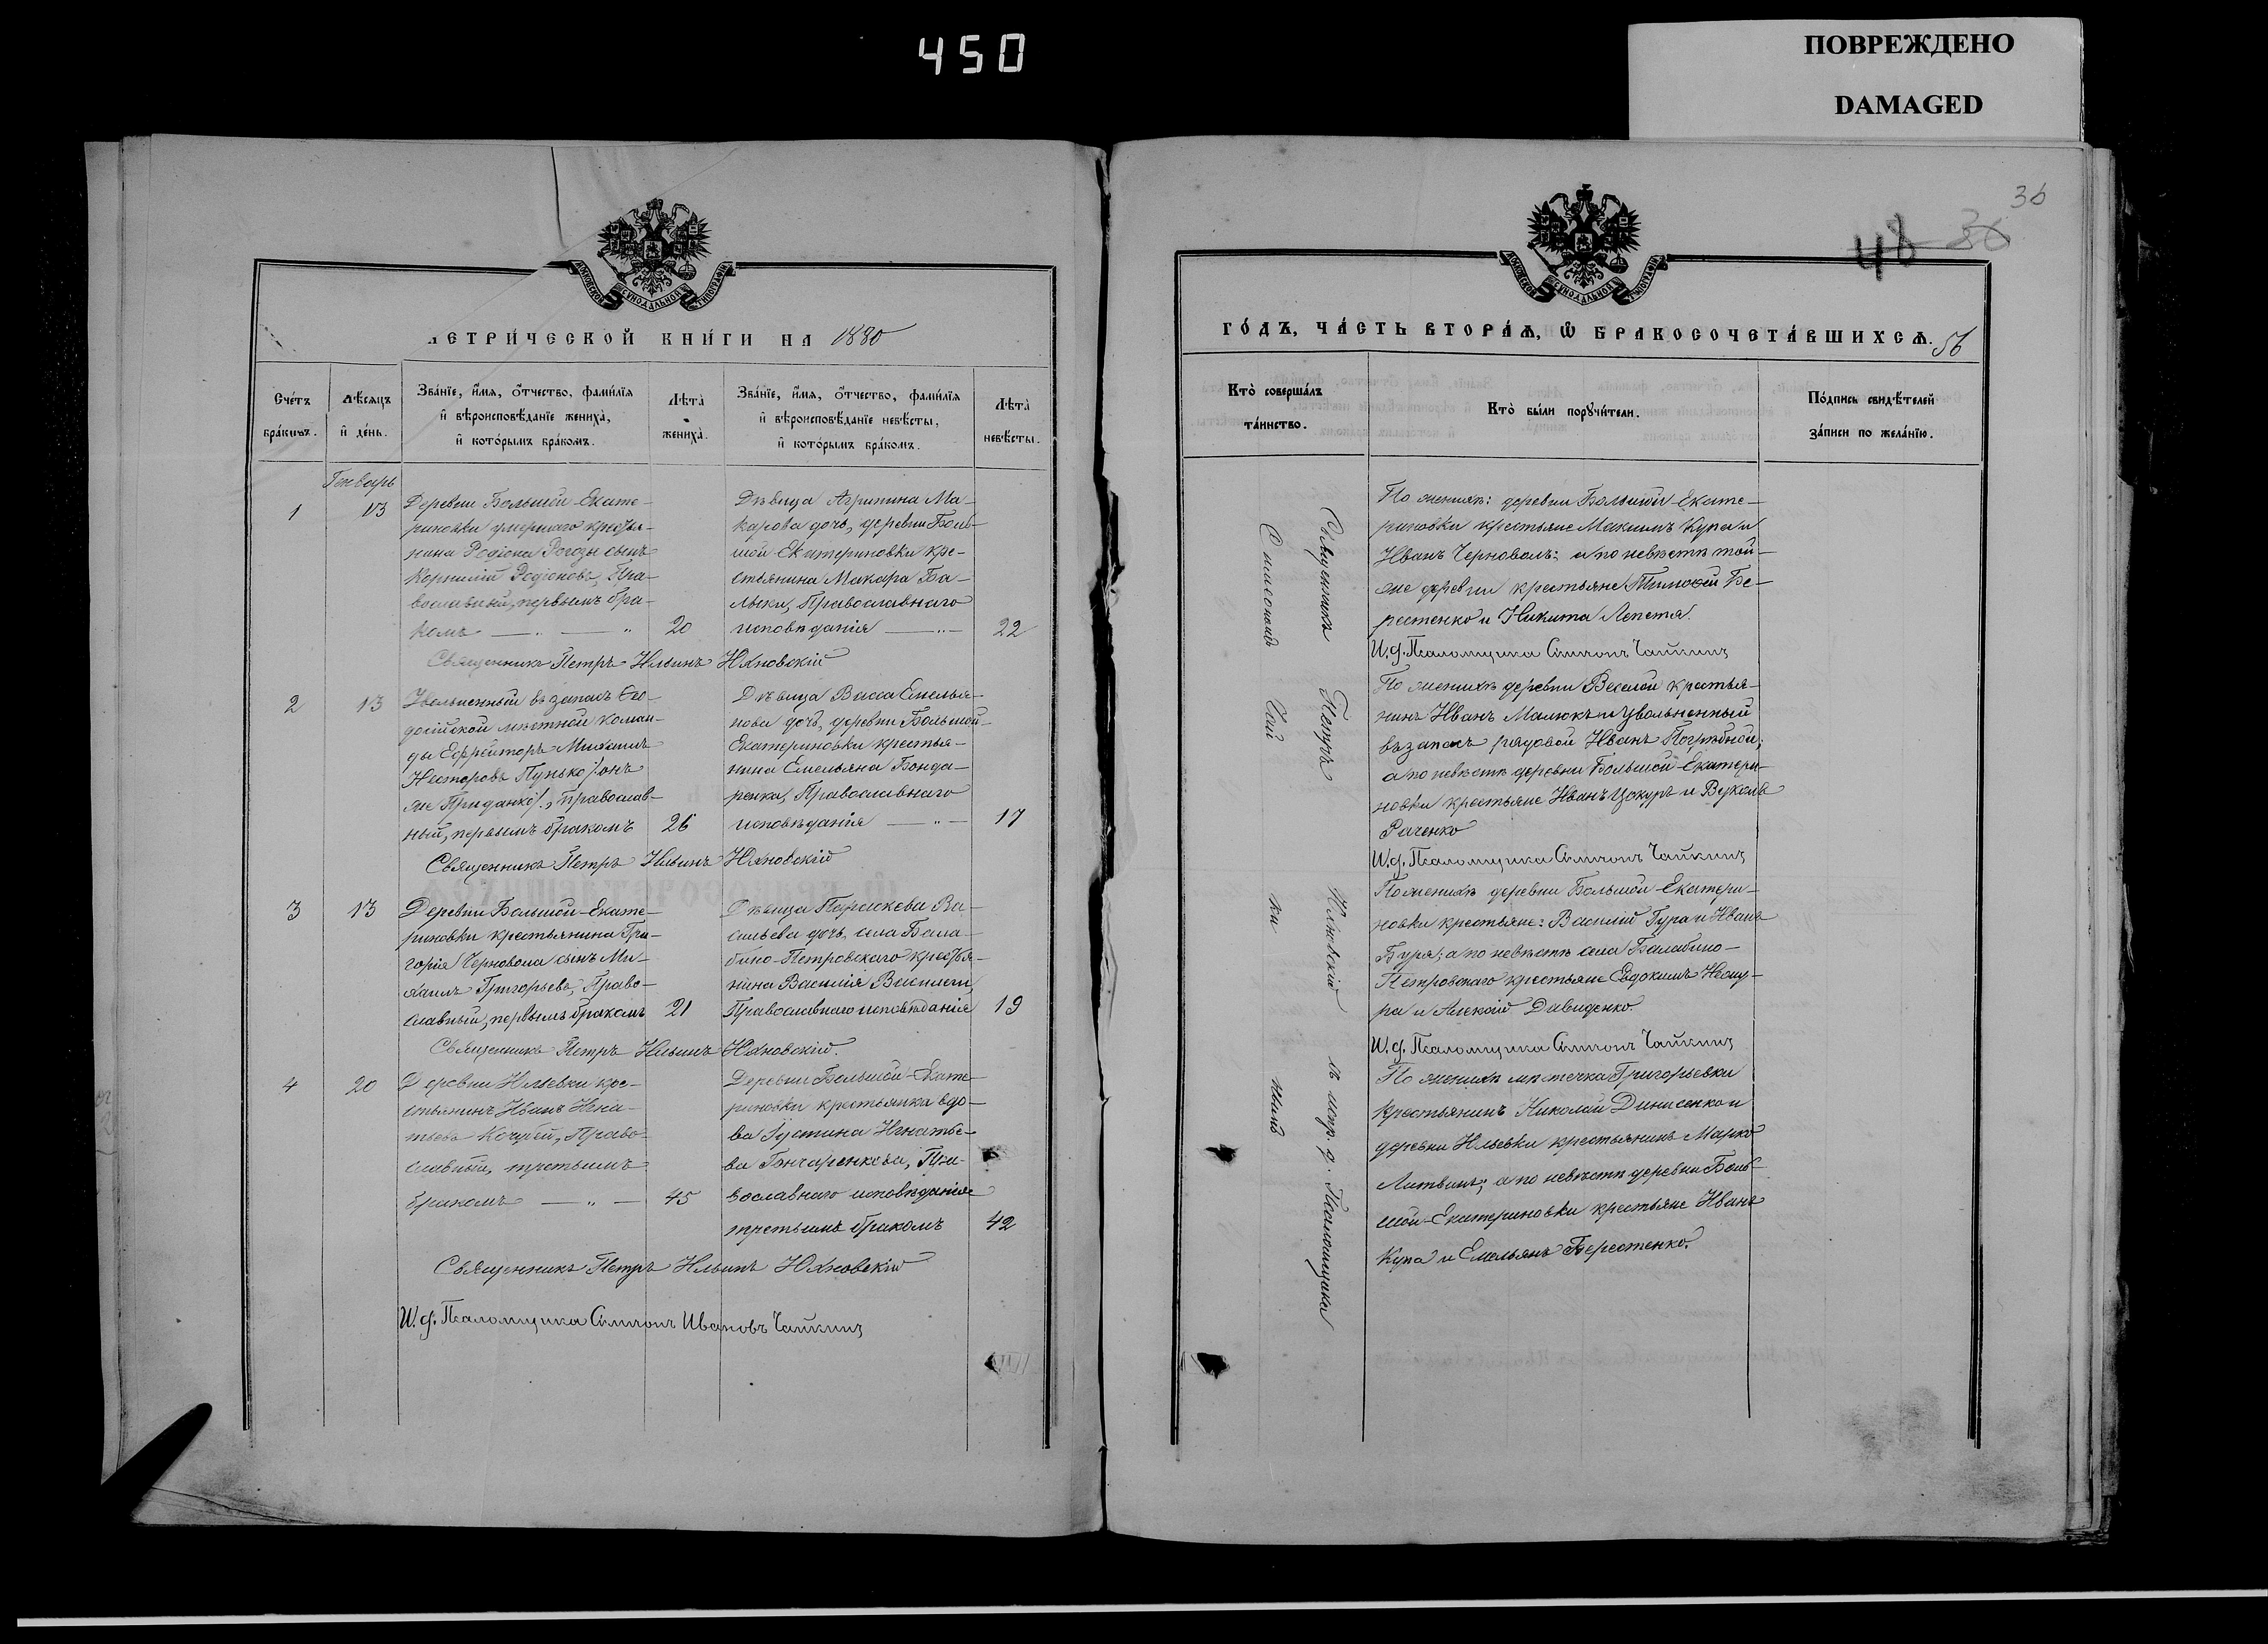 450
ПОВРЕЖДЕНО
DAMAGED
36
48 36
МОСКОВСКОЙ СѴНОДАЛЬНОЙ ТИПОГРАФІИ
ЕТРИ́ЧЕСКОЙ КНИ́ГИ НА 1880
Сче́тъ бра́кωвъ.
Мѣ́сяцъ и҆ де́нь.
Зва́нїе, и҆́мя, ѻ҆́тчество, фами́лїя
и҆ вѣроисповѣ́данїе жениха̀,
и҆ кото́рымъ бра́комъ.
Лѣта̀ жениха̀.
Зва́нїе, и҆́мя, ѻ҆́тчество, фами́лїя
и҆ вѣроисповѣ́данїе невѣ́сты,
и҆ кото́рымъ бра́комъ.
Лѣта̀ невѣ́сты.
Генварь
1
13
Деревни Большой-Екате-
риновки умершаго крестья-
нина Родіона Рогозы сынъ
Корнилій Родіоновъ, Пра-
вославный, первымъ бра-
комъ — „ — „
20
Дѣвица Агрипина Ма-
карова дочь, деревни Боль-
шой Екатериновки кре-
стьянина Макара Ба-
лыки, Православнаго
исповѣданія — „ —
22
Священникъ Петръ Ильинъ Юхновскій
2
13
Уволненный въ запасъ Ѳео-
досійской мѣстной коман-
ды Ефрейторъ Михаилъ
Несторовъ Пунько /: онъ
же Приданко :/, православ-
ный, первымъ бракомъ
26
Дѣвица Васса Емелья-
нова дочь, деревни Большой-
Екатериновки крестья-
нина Емельяна Бонда-
ренка, Православнаго
исповѣданія — „ —
17
Священникъ Петръ Ильинъ Юхновскій
3
13
Деревни Большой-Екате-
риновки крестьянина Гри-
горія Черновола сынъ Ми-
хаилъ Григорьевъ, Право-
славный, первымъ бракомъ
21
Дѣвица Параскева Ва-
сильева дочь, села Бала-
бино-Петровскаго крестья-
нина Василія
Православнаго исповѣданія
19
Священникъ Петръ Ильинъ Юхновскій.
4
20
Деревни Ильевки кре-
стьянинъ Иванъ Игна-
тьевъ Кочубей, Право-
славный, третьимъ
бракомъ — „ —
45
Деревни Большой-Екате-
риновки крестьянка вдо-
ва Іустина Игнатье-
ва Гончаренкова, Пра-
вославнаго исповѣданія
третьимъ бракомъ
42
Священникъ Петръ Ильинъ Юхновскій
И. д. Псаломщика Симеонъ Ивановъ Чайкинъ
МОСКОВСКОЙ СѴНОДАЛЬНОЙ ТИПОГРАФІИ
ГО́ДЪ, ЧА́СТЬ ВТОРА́Ѧ, Ѽ БРАКОСОЧЕТА́ВШИХСѦ. 56
Кто̀ соверша́лъ та́инство.
Кто̀ бы́ли порꙋчи́тели.
По́дпись свидѣ́телей за́писи по жела́нїю.
Священникъ Петръ Юхновскій съ испр. д. Псаломщика
Симеономъ Чай ки нымъ
По женихѣ: деревни Большой Екате-
риновки крестьяне Максимъ Купа и
Иванъ Черноволъ; а по невѣстѣ той-
же деревни крестьяне Тимоѳей Бе-
рестенко и Никита Лепетя.
И. д. Псаломщика Симеонъ Чайкинъ
По женихѣ деревни Веселой крестья-
нинъ Иванъ Малюкъ и уволненный
въ запасъ рядовой Иванъ Погрѣбной;
а по невѣстѣ деревни Большой-Екатери-
новки крестьяне Иванъ Цокуръ и Вуколъ
Раченко
И. д. Псаломщика Симеонъ Чайкинъ
По женихѣ деревни Большой-Екатери-
новки крестьяне: Василій Гура и Иванъ
Буря; а по невѣстѣ села Балабино-
Петровскаго крестьяне Евдокимъ
ра и Алексій Давиденко.
И. д. Псаломщика Симеонъ Чайкинъ
По женихѣ мѣстечка Григорьевки
крестьянинъ Николай Динисенко и
деревни Ильевки крестьянинъ Марко
Литвинъ; а по невѣстѣ деревни Боль-
шой-Екатериновки крестьяне Иванъ
Купа и Емельянъ Берестенко.